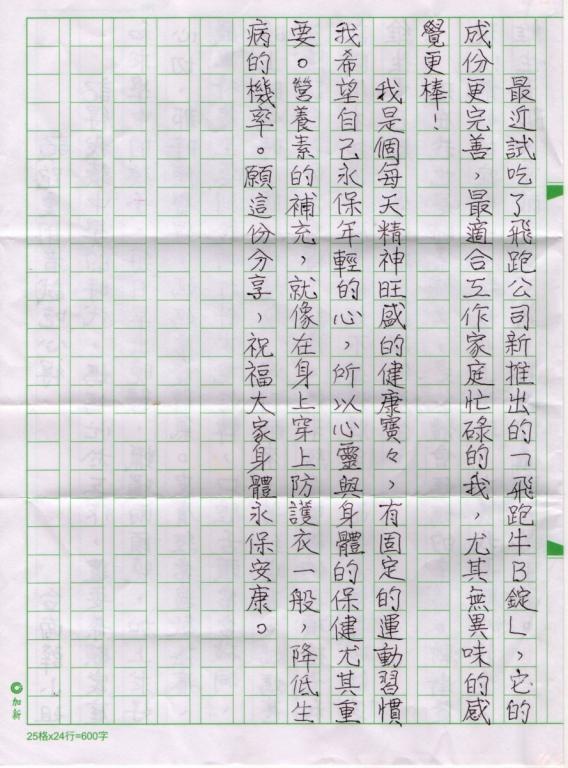 最近試吃了飛跑公司新推出的「飛跑牛B錠」,它的
成份更完善,最適合工作家庭忙碌的我,尤其無異味的感
覺更棒!
我是個每天精神旺盛的健康寶々,有固定的運動習慣
我希望自己永保年輕的心,所以心靈與身體的保健尤其重
要。營養素的補充,就像在身上穿上防護衣一般,降低生
病的機率。願這份分享,祝福大家身體永保安康。
加新
25格x24行=600字